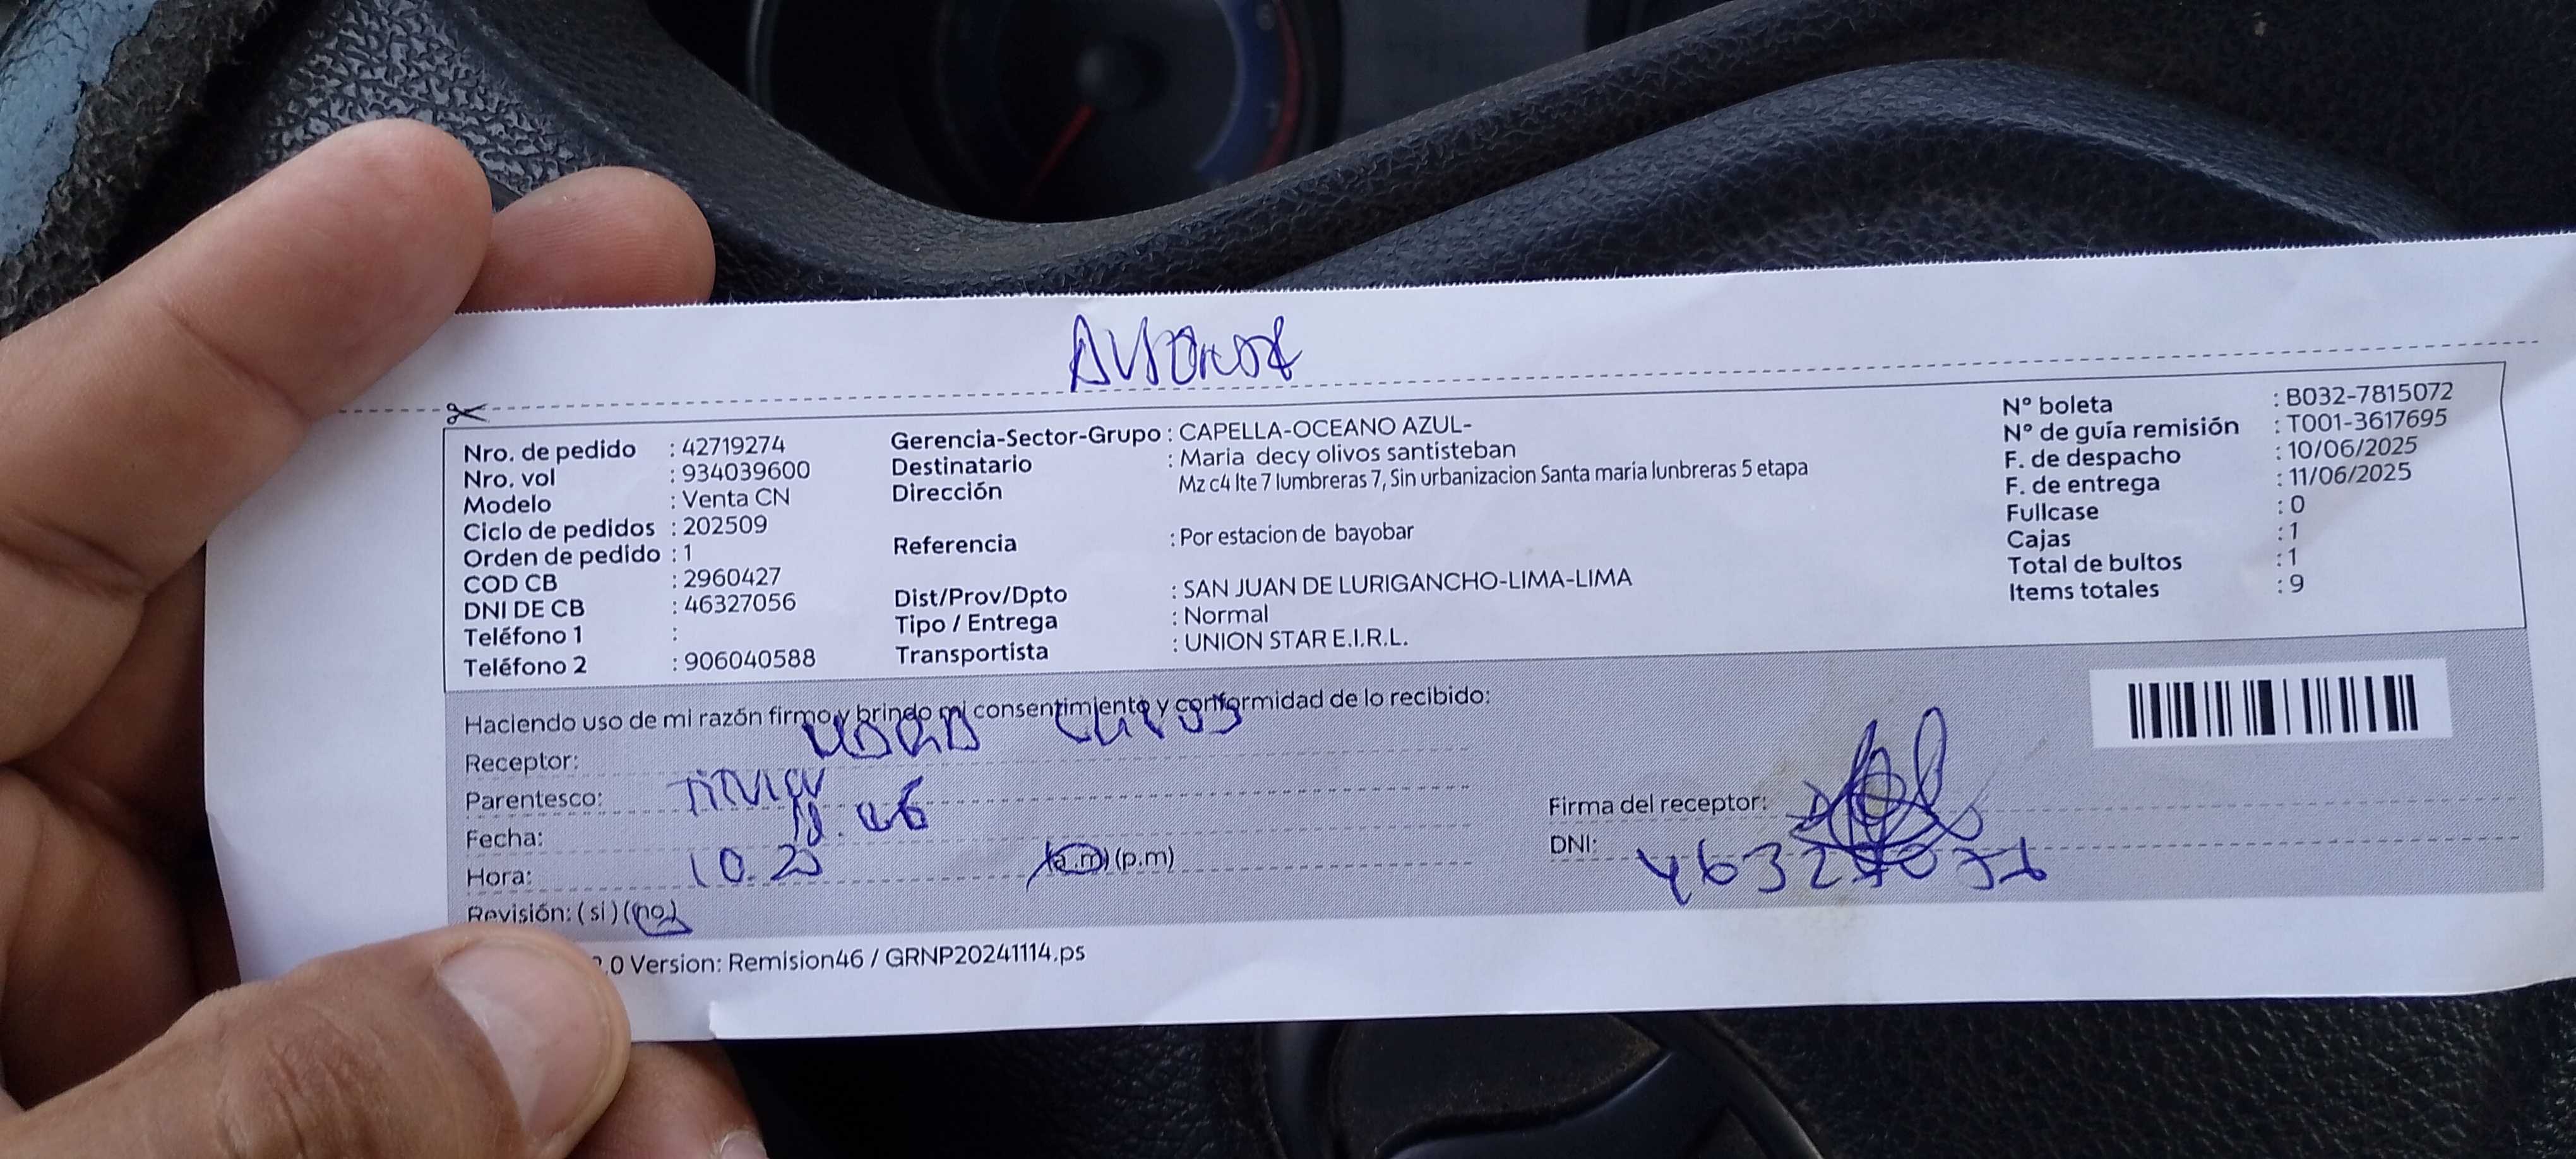 Nro. de pedido : 42719274
Nro. vol : 934039600
Modelo : Venta CN
Ciclo de pedidos : 202509
Orden de pedido : 1
COD CB : 2960427
DNI DE CB : 46327056
Teléfono 1 :
Teléfono 2 : 906040588
Gerencia-Sector-Grupo : CAPELLA-OCEANO AZUL-
Destinatario : Maria decy olivos santisteban
Dirección Mz c4 lte 7 lumbreras 7, Sin urbanizacion Santa maria lunbreras 5 etapa
Referencia : Por estacion de bayobar
Dist/Prov/Dpto : SAN JUAN DE LURIGANCHO-LIMA-LIMA
Tipo / Entrega : Normal
Transportista : UNION STAR E.I.R.L.
N° boleta : B032-7815072
N° de guía remisión : T001-3617695
F. de despacho : 10/06/2025
F. de entrega : 11/06/2025
Fullcase : 0
Cajas : 1
Total de bultos : 1
Items totales : 9
Haciendo uso de mi razón firmo y brindo mi consentimiento y conformidad de lo recibido:
Receptor:
Parentesco: Titular
Fecha:
Hora: 10.20 (a.m) (p.m)
Revisión: (si) (no)
Firma del receptor:
DNI:
.0 Version: Remision46 / GRNP20241114.ps